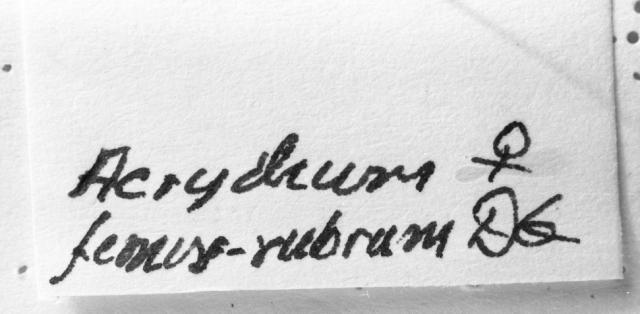 Acrydium ♀
femur-rubrum DG